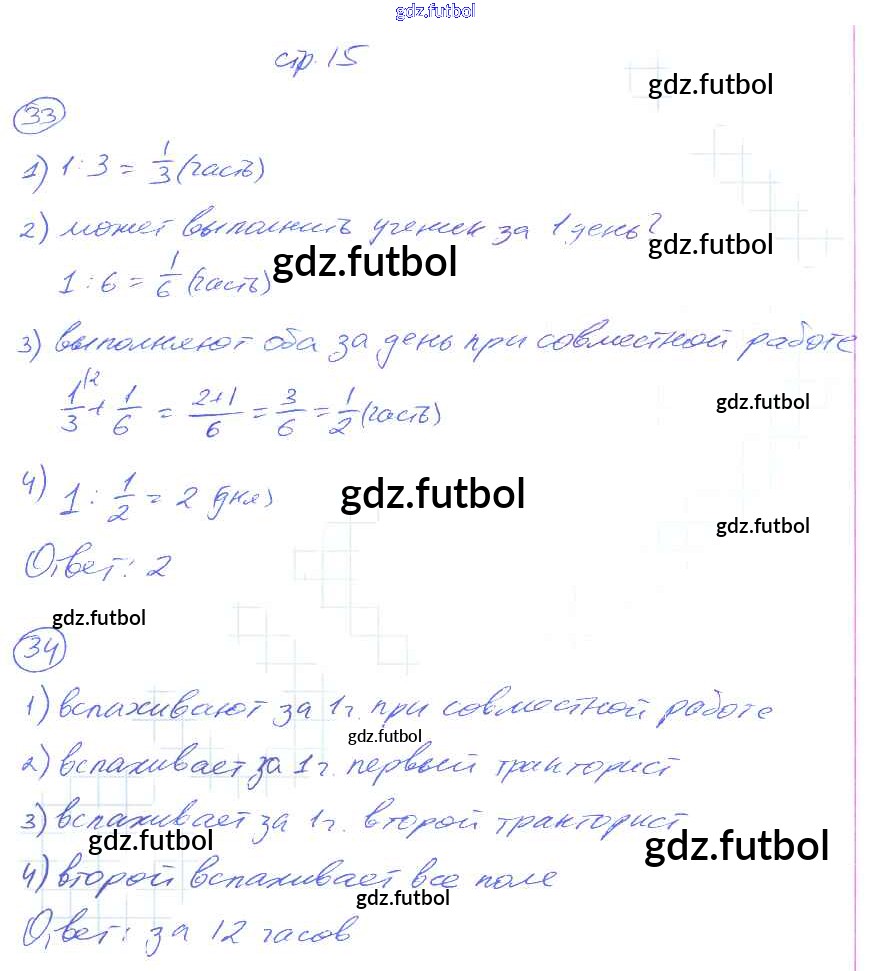 gdz.futbol
стр. 15
gdz.futbol
33
1) 1 : 3 = 1/3 (часть)
2) может выполнить ученик за 1 день?
gdz.futbol
gdz.futbol
1 : 6 = 1/6 (часть)
3) выполняют оба за день при совместной работе
1/3 (2 + 1/6 = 2+1/6 = 3/6 = 1/2 (часть)
gdz.futbol
4) 1 : 1/2 = 2 (дня)
gdz.futbol
gdz.futbol
Ответ: 2
gdz.futbol
34
1) вспахивают за 1 г. при совместной работе
gdz.futbol
2) вспахивает за 1 г. первый тракторист
3) вспахивает за 1 г. второй тракторист
gdz.futbol
gdz.futbol
4) второй вспахивает все поле
gdz.futbol
Ответ: за 12 часов